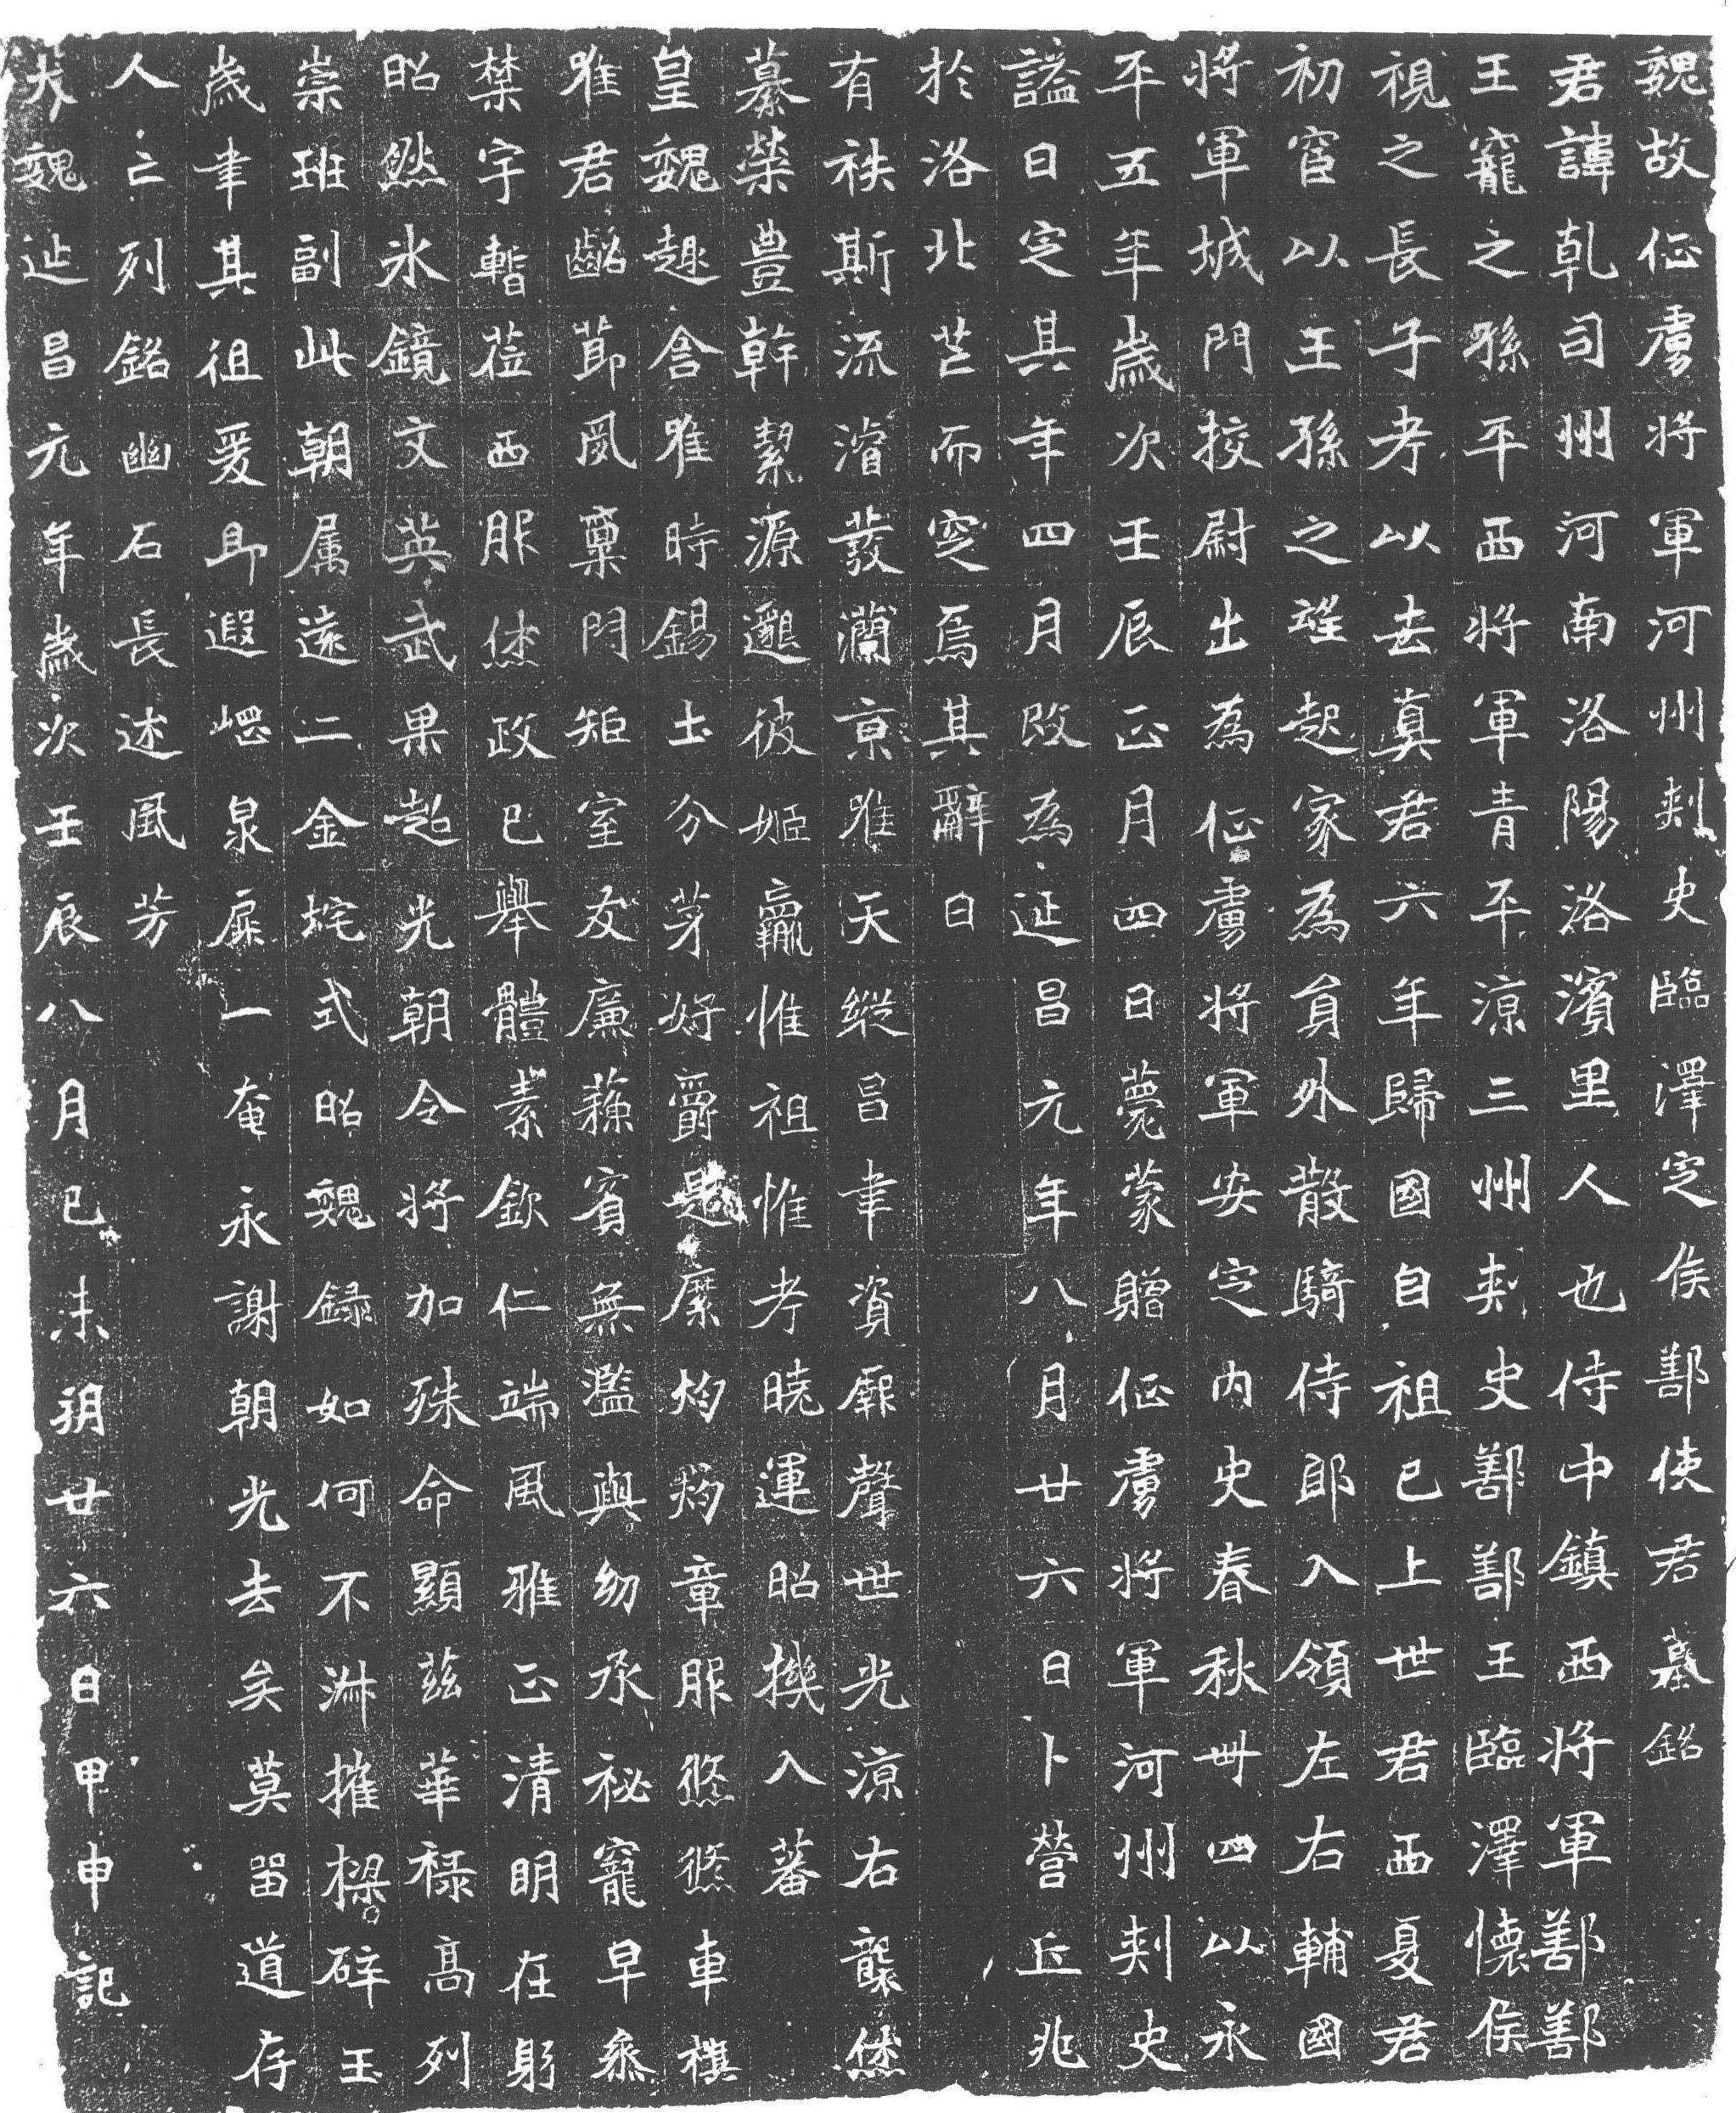 魏故征虜將軍河州刺史臨澤定侯鄯使君墓銘
君諱乹司州河南洛陽洛濱里人也侍中鎮西將軍鄯鄯
王寵之孫平西將軍青平涼三州刺史鄯鄯王臨澤懷侯
視之長子考以去真君六年歸國自祖已上世君西夏君
初宦以王孫之望起家為員外散騎侍郎入領左右輔國
將軍城門挍尉出為征虜將軍安定內史春秋卌四以永
平五年歲次壬辰正月四日薨蒙贈征虜將軍河州刺史
謚曰定其年四月改為延昌元年八月廿六日卜營丘兆
於洛北芒而窆焉其辭曰
有秩斯流濬發瀾京唯天縱昌聿資厥聲世光涼右襲休
纂榮豊幹絜源邈彼姬嬴惟祖惟考曉運昭機入蕃
皇魏趣舍唯時錫土分茅好爵是縻灼灼章服悠悠車旗
唯君齠茚風稟門矩室友廉蘓賓無濫與幼承秘寵早參
禁宇暫莅西服休政已舉體素欽仁端風雅正清明在躬
昭然氷鏡文英武果超光朝令將加殊命顯茲華祿高列
崇班副此朝属遠二金垞式昭魏録如何不淋摧樑碎玉
歲聿其徂爰即遐崼泉扉一奄永謝朝光去矣莫留道存
人亡列銘幽石長述風芳
大魏延昌元年歲次壬辰八月己未朔廿六日甲申記